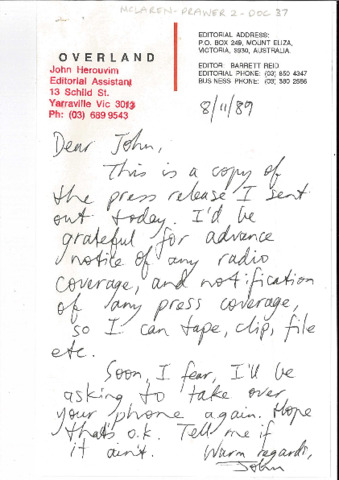 MCLAREN - DRAWER 2 - DOC 37
2.
OVERLAND
John Herouvim
Editorial Assistant
13 Schild St.
Yarraville Vic 3013
Ph: (03) 689 9543
EDITORIAL ADDRESS:
P.O. BOX 249, MOUNT ELIZA,
VICTORIA, 3930, AUSTRALIA.
EDITOR: BARRETT REID
EDITORIAL PHONE: (03) 850 4347
BUSINESS PHONE: (03) 380 2586
8/11/89
Dear John,
This is a copy of
the press release I sent
out today. I'd be
grateful for advance
notice of any radio
coverage, and notification
of any press coverage,
so I can tape, clip, file
etc.
Soon, I fear, I'll be
asking to take over
your phone again. Hope
that's o.k. Tell me if
it ain't. Warm regards,
John